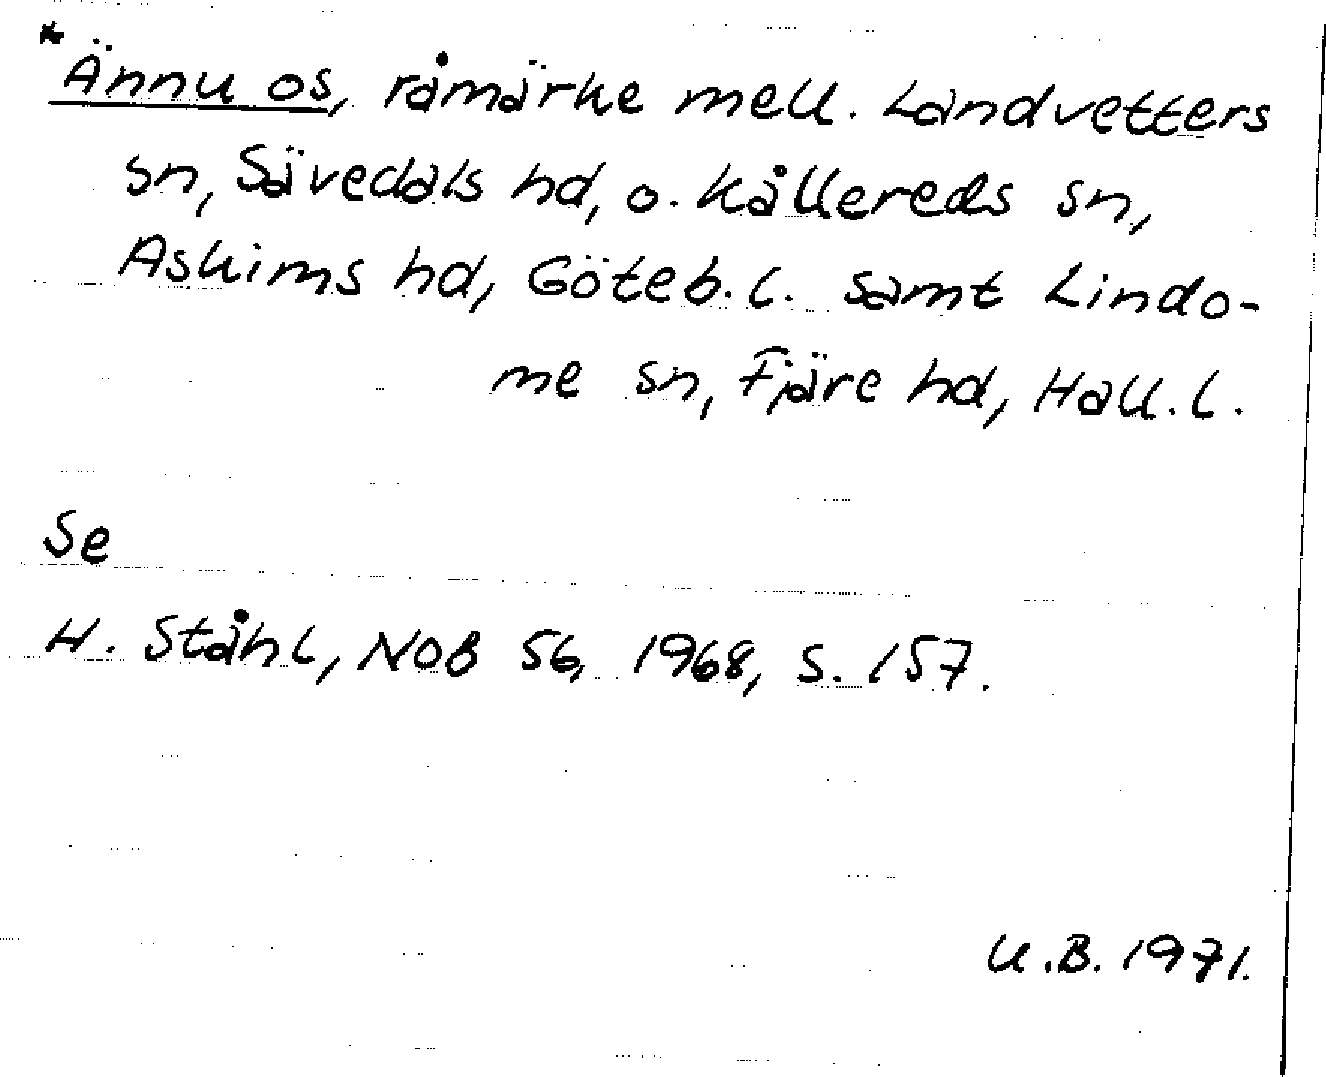 *Ännu os, råmärke mell. Landvetters
sn, Sävedals hd, o. Kållereds sn,
Askims hd, Göteb. l. samt Lindo-
me sn, Fjäre hd, Hall. l.
Se
H. Ståhl, NoB 56, 1968, s. 157.
U.B. 1971.